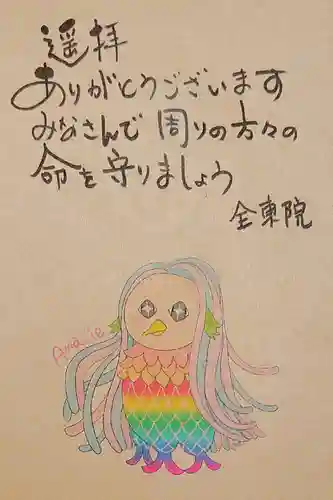 遥拝
ありがとうございます
みなさんで 周りの方々の
命を守りましょう
全東院
Amabie